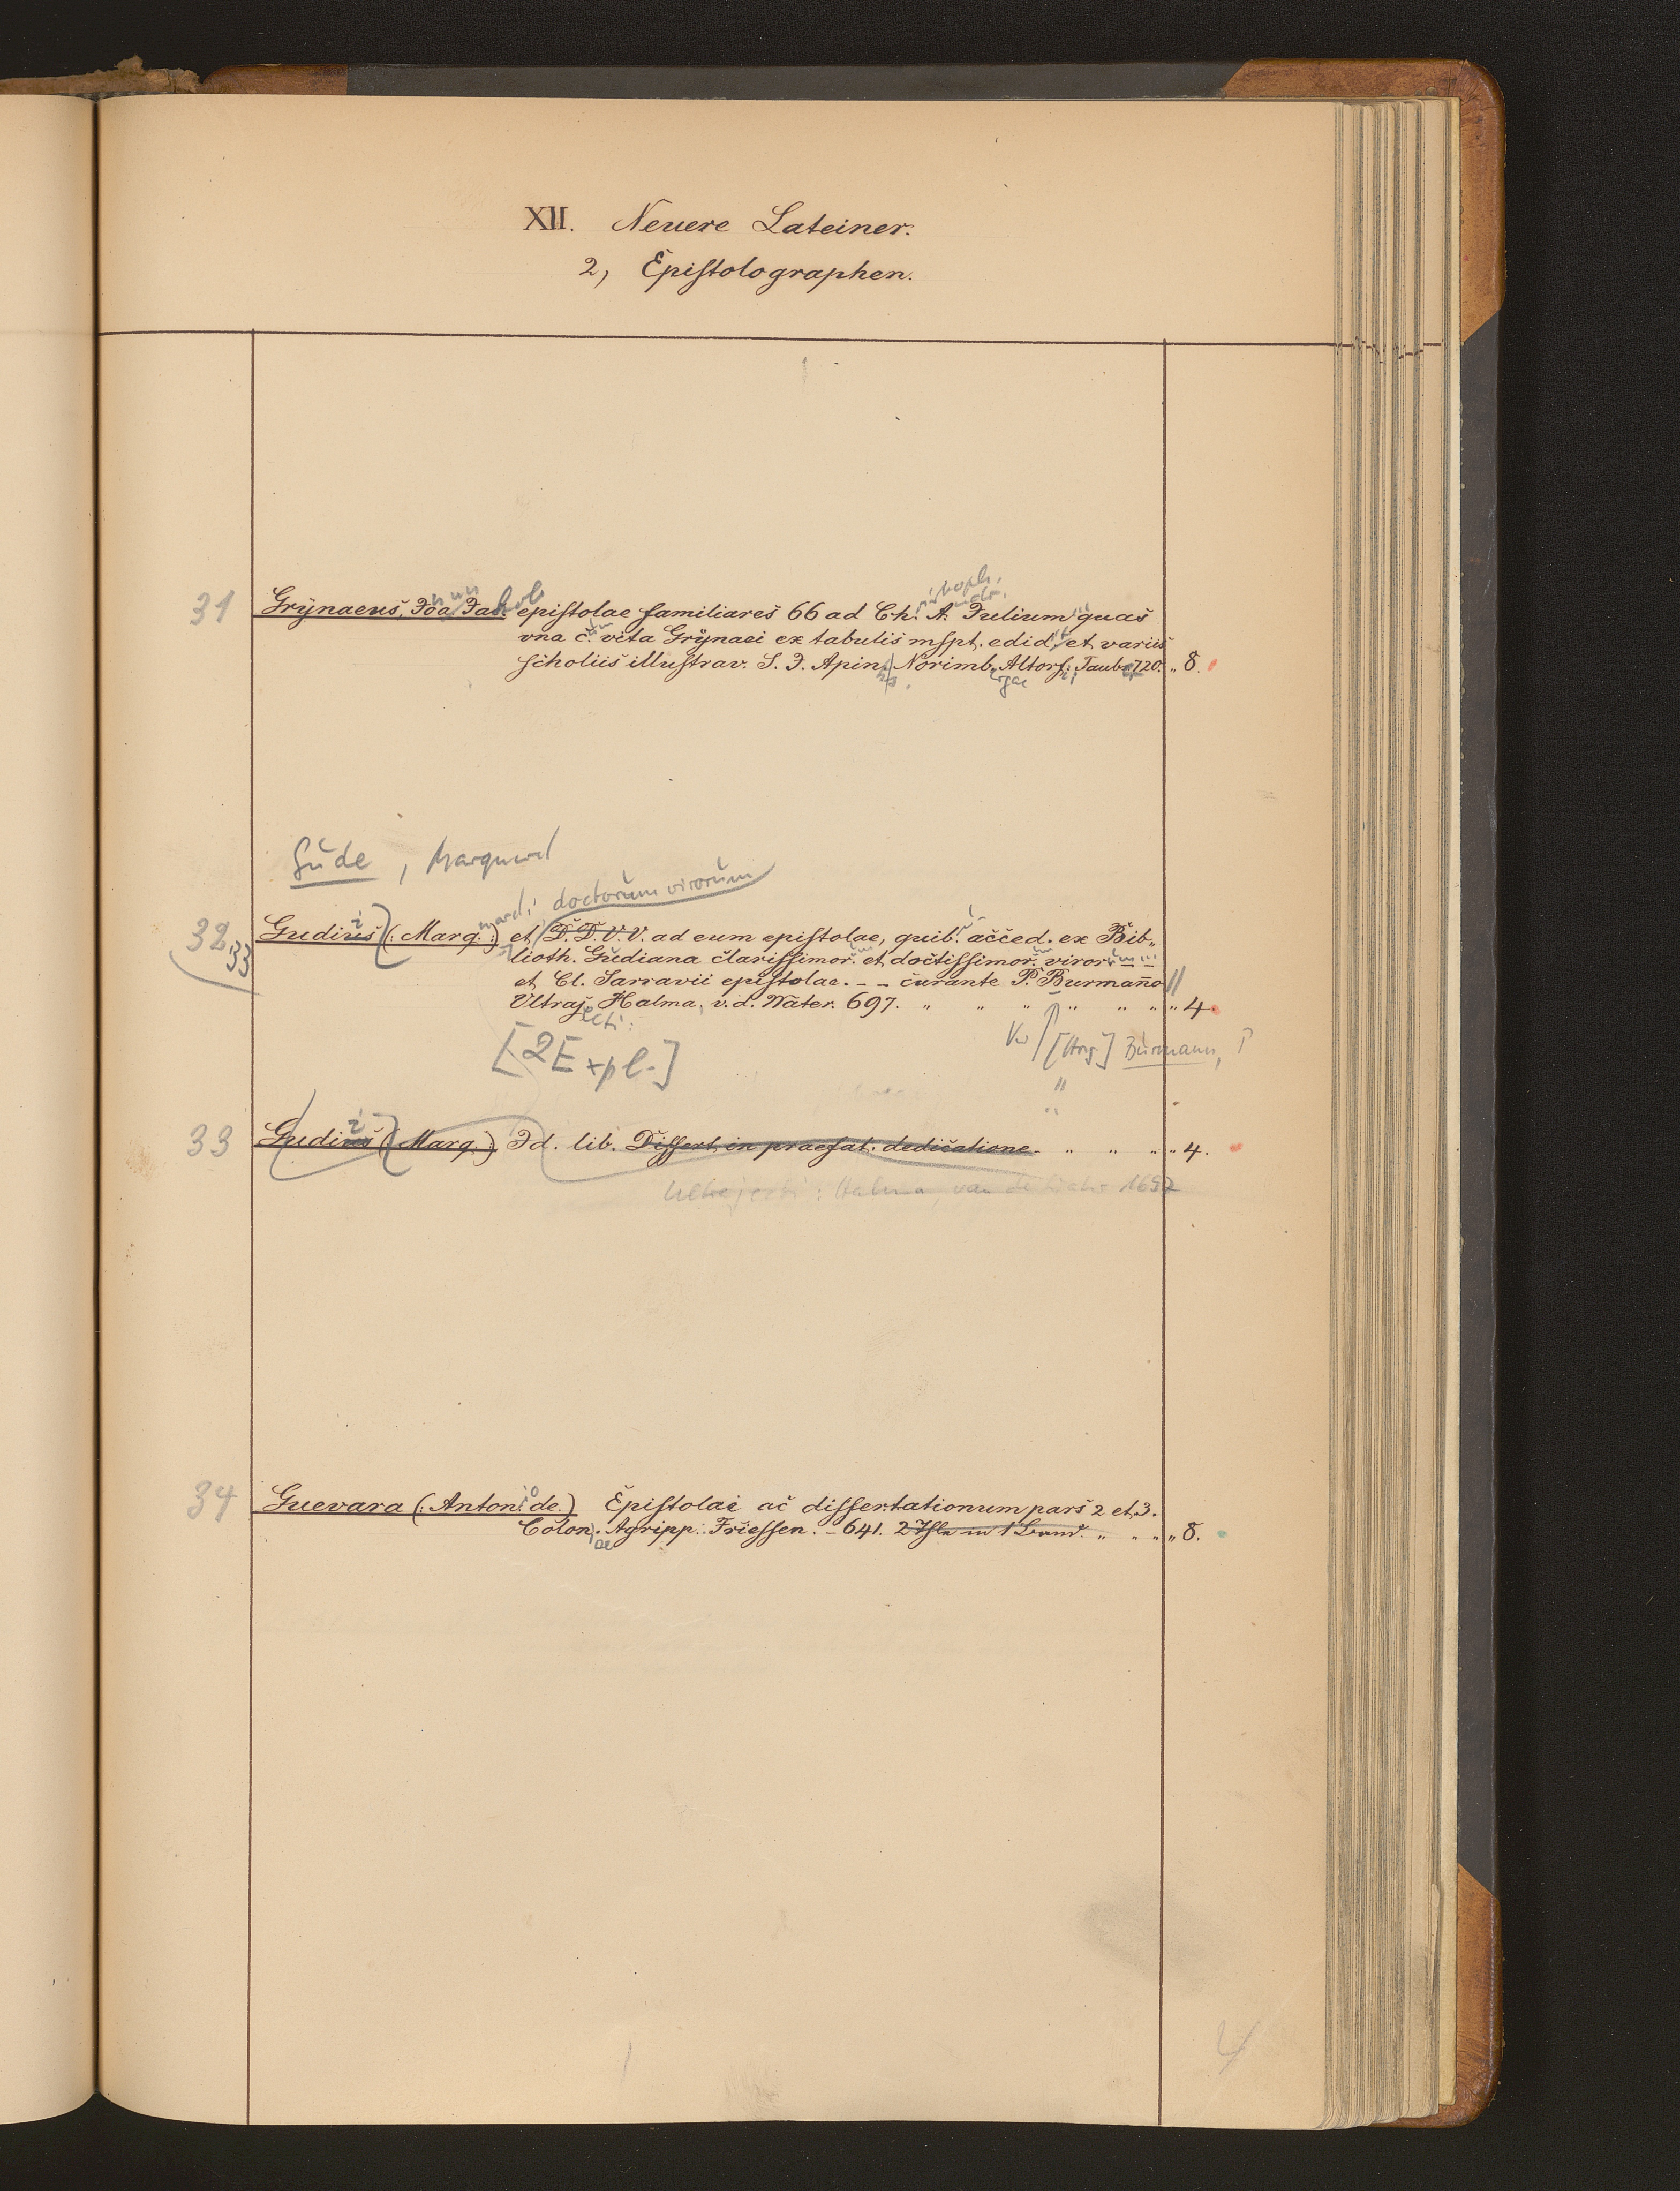 XII. Neuere Lateiner.
2, Epistolographen.
31 Grynaeus, Joa. Jac. epistolae familiares 66 ad Ch. A. Julium quas
vna c. vita Grynaei ex tabulis mspt. edid. et variis
scholiis illustrav. S. J. Apin. Norimb. Altorf. Taub. 720. „ 8.
Gude, Marquard
doctorum virorum
32 Gudius (: Marq. :) et D. D. V. V. ad eum epistolae, quib. acced. ex Bib„
33
lioth. Gudiana clarissimor. et doctissimor. viror.
et Cl. Sarravii epistolae. - - curante P. Burmanno
Ultraj. Halma, v. d. Water. 697. „ „ „ „ „ „ „ 4.
[2 Expl.]
Vw [Hrsg] Burmann, P
33 Gudius (: Marq. :) Id. lib. Dissert. in praefat. dedicatione. „ „ „ „ 4.
Ultrajecti: Halma, van de Water 1697
34 Guevara (: Anton. de.) Epistolae ac dissertationum pars 2 et 3.
Colon. Agripp. Friessen. - 641. 2 Thle in 1 Band. „ „ „ „ 8.
4